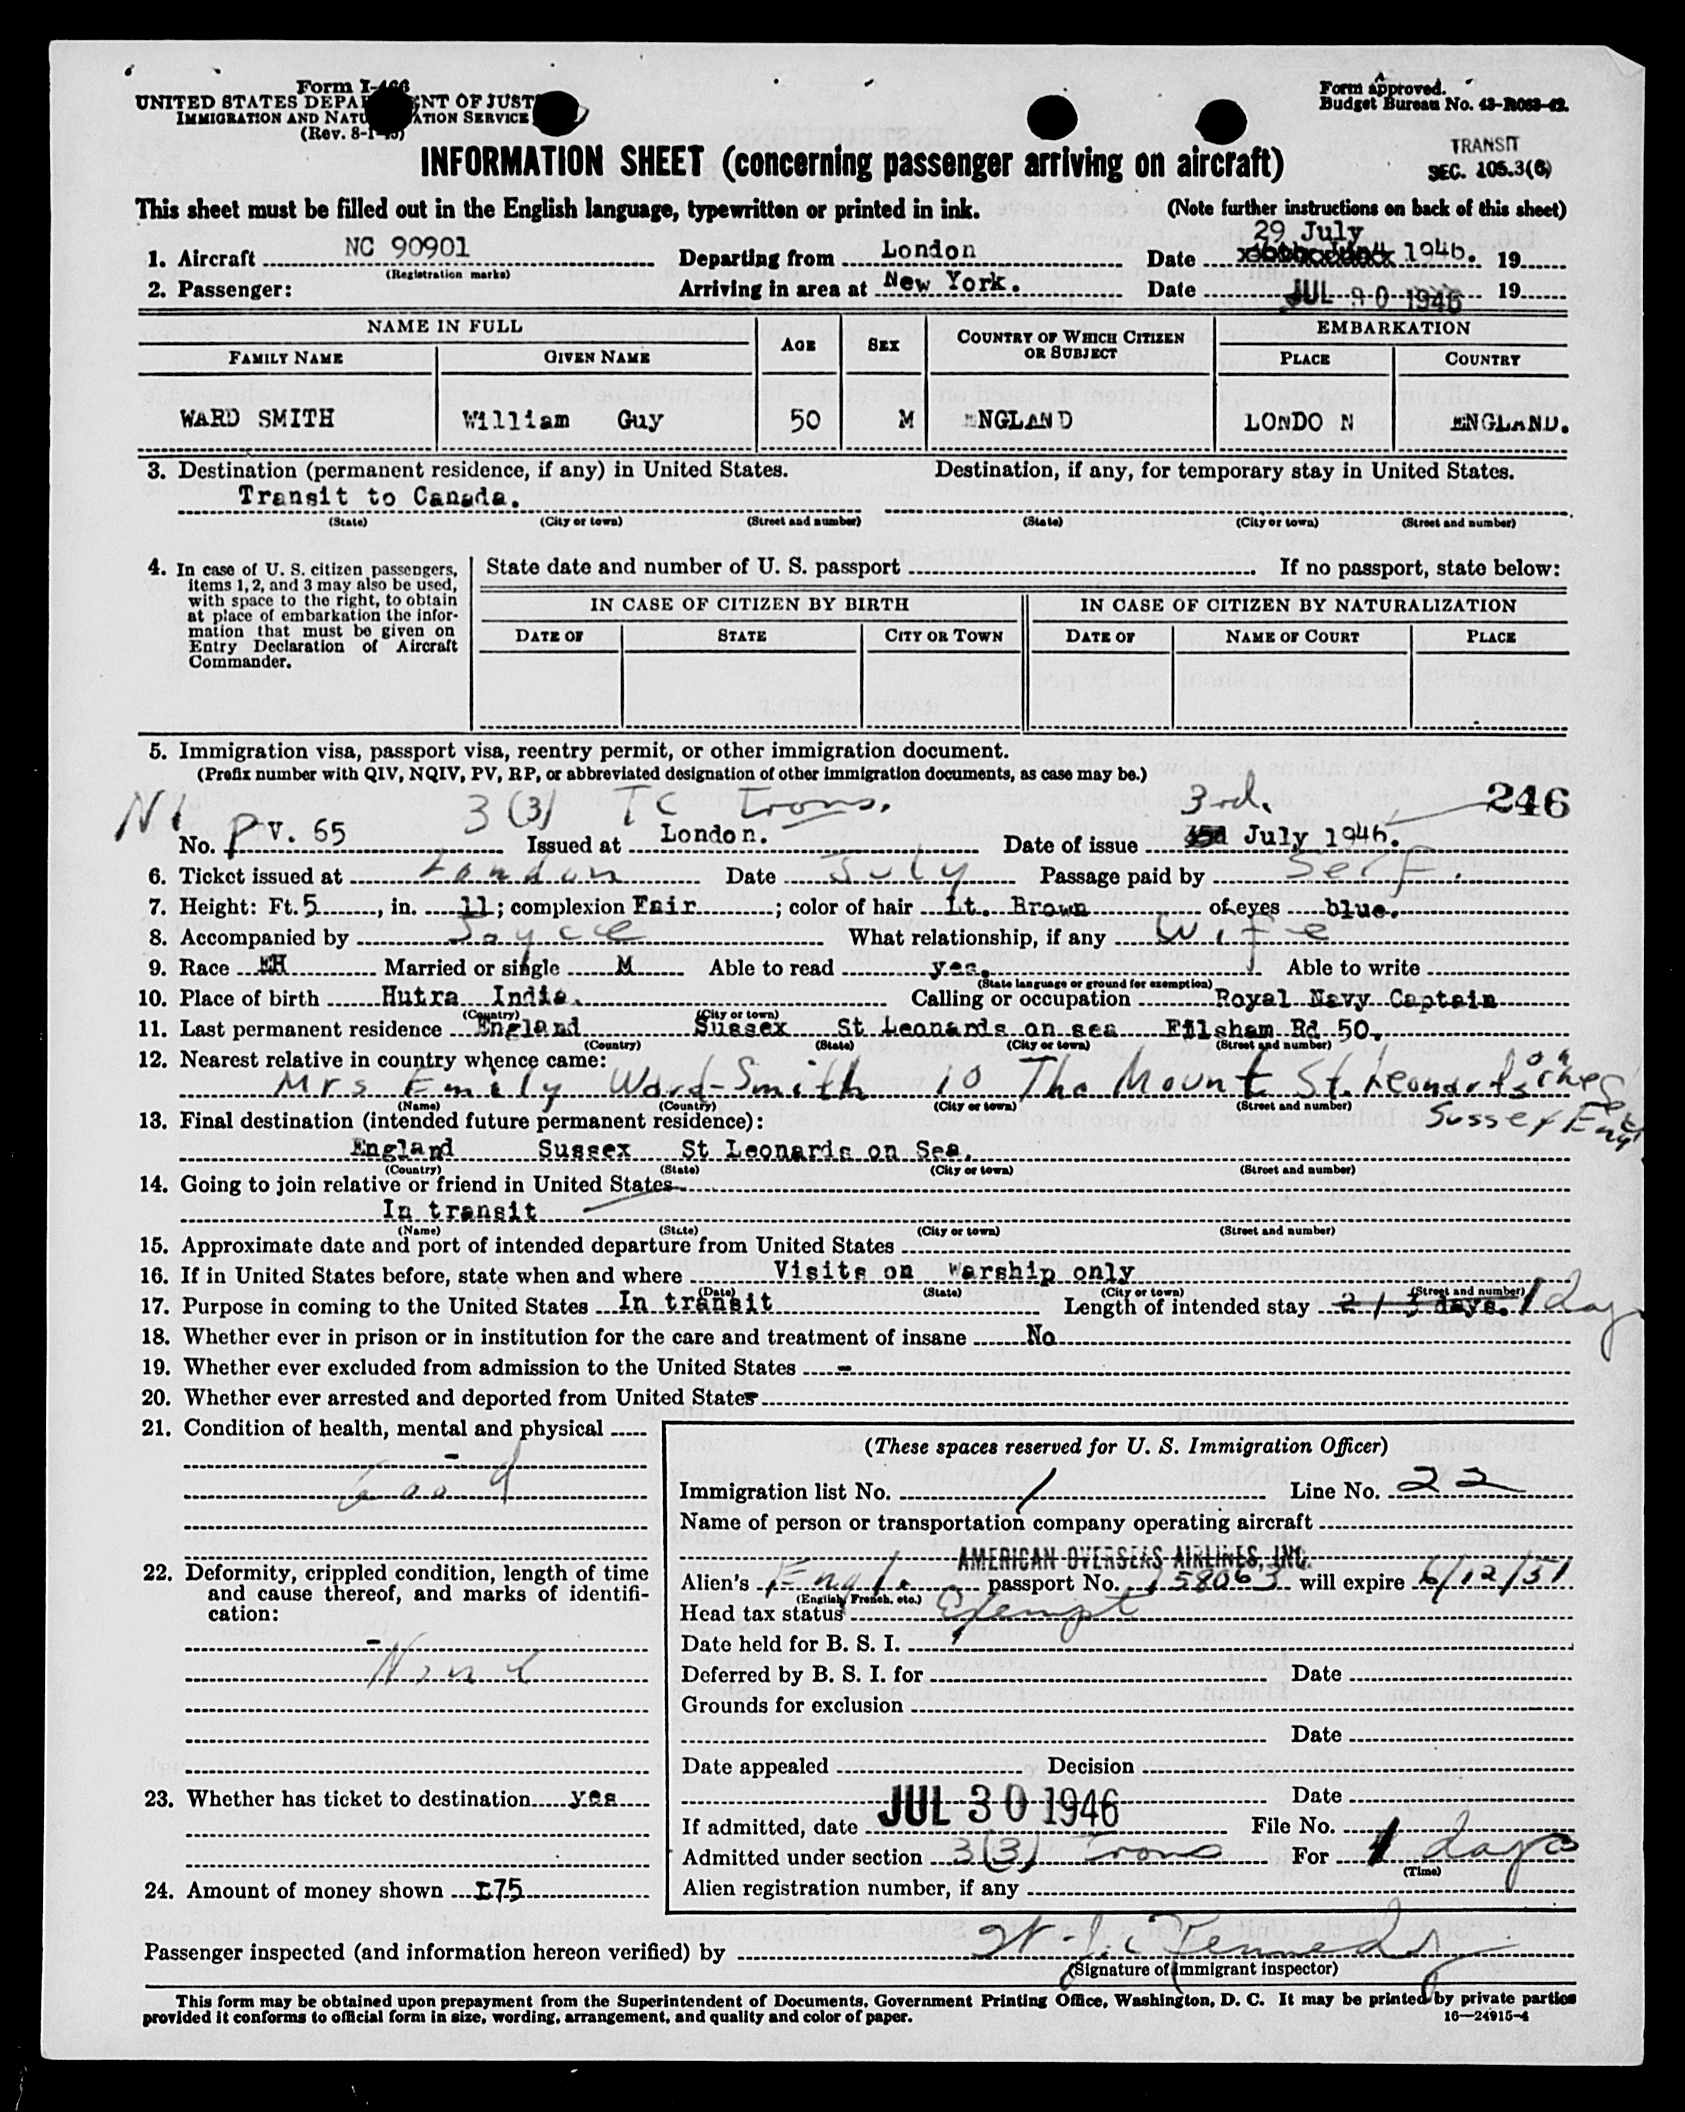 Form I-466
UNITED STATES DEPARTMENT OF JUSTICE
IMMIGRATION AND NATURALIZATION SERVICE
(Rev. 8-1-45)
Form approved.
Budget Bureau No. 43-R063-42.
TRANSIT
SEC. 105.3(6)
INFORMATION SHEET (concerning passenger arriving on aircraft)
This sheet must be filled out in the English language, typewritten or printed in ink. (Note further instructions on back of this sheet)
29 July
1. Aircraft NC 90901 Departing from London Date 1946. 19
(Registration marks)
2. Passenger: Arriving in area at New York. Date JUL 30 1946 19
NAME IN FULL AGE SEX COUNTRY OF WHICH CITIZEN OR SUBJECT EMBARKATION
FAMILY NAME GIVEN NAME PLACE COUNTRY
WARD SMITH William Guy 50 M ENGLAND LONDO N ENGLAND.
3. Destination (permanent residence, if any) in United States. Destination, if any, for temporary stay in United States.
Transit to Canada.
(State) (City or town) (Street and number) (State) (City or town) (Street and number)
4. In case of U. S. citizen passengers, items 1, 2, and 3 may also be used, with space to the right, to obtain at place of embarkation the infor-mation that must be given on Entry Declaration of Aircraft Commander.
State date and number of U. S. passport If no passport, state below:
IN CASE OF CITIZEN BY BIRTH IN CASE OF CITIZEN BY NATURALIZATION
DATE OF STATE CITY OR TOWN DATE OF NAME OF COURT PLACE
5. Immigration visa, passport visa, reentry permit, or other immigration document.
(Prefix number with QIV, NQIV, PV, RP, or abbreviated designation of other immigration documents, as case may be.)
NI 3(3) TC Trans. 3rd. 246
No. P V. 65 Issued at London. Date of issue July 1946.
6. Ticket issued at London Date July Passage paid by Self.
7. Height: Ft. 5, in. 11; complexion Fair; color of hair Lt. Brown of eyes blue.
8. Accompanied by Joyce What relationship, if any Wife
9. Race EH Married or single M Able to read yes. Able to write
(State language or ground for exemption)
10. Place of birth Hutra India. Calling or occupation Royal Navy Captain
(Country) (City or town)
11. Last permanent residence England Sussex St Leonards on sea Filsham Rd 50.
(Country) (State) (City or town) (Street and number)
12. Nearest relative in country whence came:
Mrs Emily Ward-Smith 10 The Mount St. Leonards on
(Name) (Country) (City or town) (Street and number)
Sussex Eng
13. Final destination (intended future permanent residence):
England Sussex St Leonards on Sea.
(Country) (State) (City or town) (Street and number)
14. Going to join relative or friend in United States
In transit
(Name) (State) (City or town) (Street and number)
15. Approximate date and port of intended departure from United States
16. If in United States before, state when and where Visits on Warship only
(Date) (State) (City or town) (Street and number)
17. Purpose in coming to the United States In transit Length of intended stay 2 / 3 days. 1 day
18. Whether ever in prison or in institution for the care and treatment of insane No
19. Whether ever excluded from admission to the United States -
20. Whether ever arrested and deported from United States
21. Condition of health, mental and physical
Good
22. Deformity, crippled condition, length of time and cause thereof, and marks of identifi-cation:
None
23. Whether has ticket to destination yes
24. Amount of money shown £75
(These spaces reserved for U. S. Immigration Officer)
Immigration list No. 1 Line No. 22
Name of person or transportation company operating aircraft
AMERICAN OVERSEAS AIRLINES, INC.
Alien's passport No. 158063 will expire 6/12/51
(English, French, etc.)
Head tax status Exempt
Date held for B. S. I.
Deferred by B. S. I. for Date
Grounds for exclusion
Date
Date appealed Decision
Date
If admitted, date JUL 30 1946 File No.
Admitted under section 3(3) Trans For 1 days
(Time)
Alien registration number, if any
Passenger inspected (and information hereon verified) by Kennedy
(Signature of immigrant inspector)
This form may be obtained upon prepayment from the Superintendent of Documents, Government Printing Office, Washington, D. C. It may be printed by private parties
provided it conforms to official form in size, wording, arrangement, and quality and color of paper. 16—24915-4